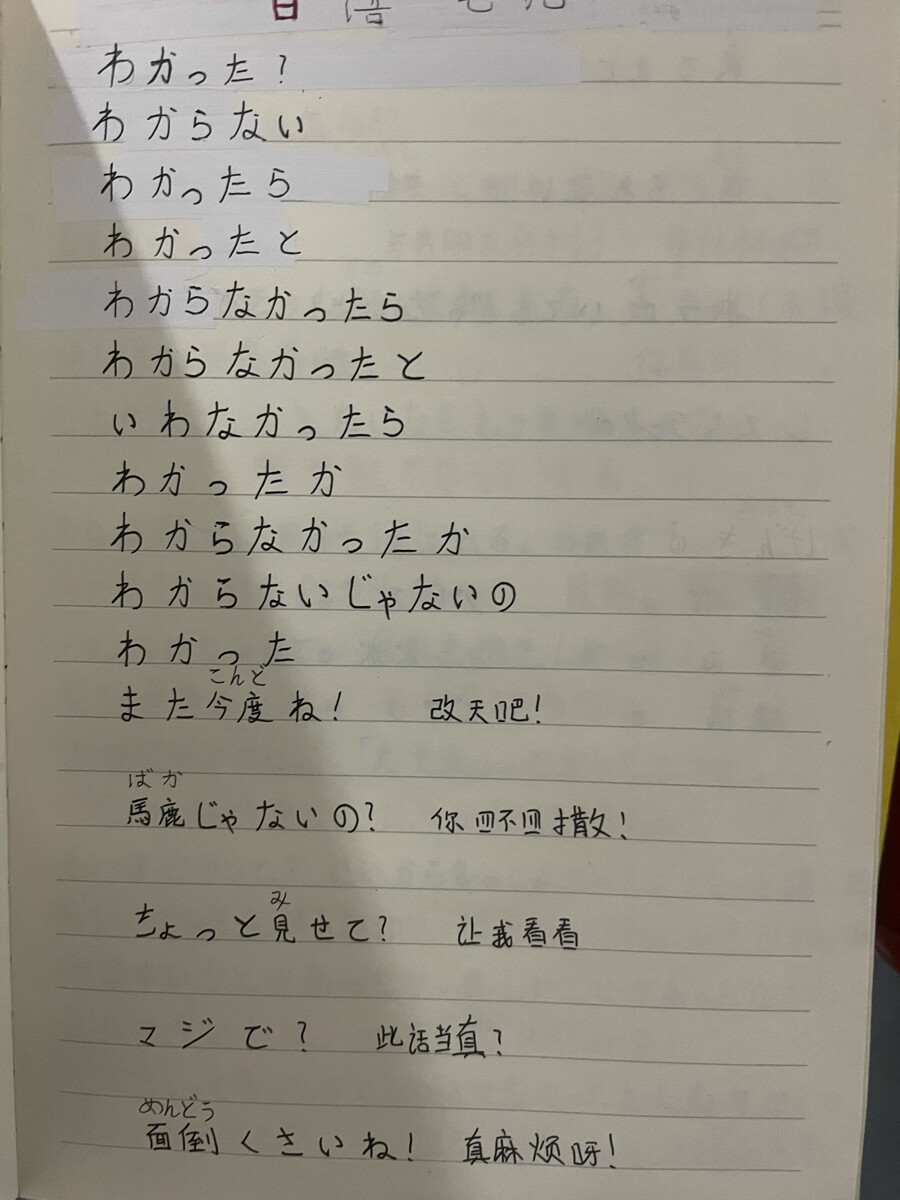 日语
わかった?
わからない
わかったら
わかったと
わからなかったら
わからなかったと
いわなかったら
わかったか
わからなかったか
わからないじゃないの
わかった
こんど
また今度ね! 改天吧!
ばか
馬鹿じゃないの? 你四不四撒!
み
ちょっと見せて? 让我看看
マジで? 此话当真?
めんどう
面倒くさいね! 真麻烦呀!